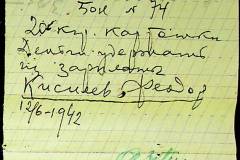 Бон № 74
20 кгр. картошки
Деньги удержать
из зарплаты
Киселев Федор
12/6-1942